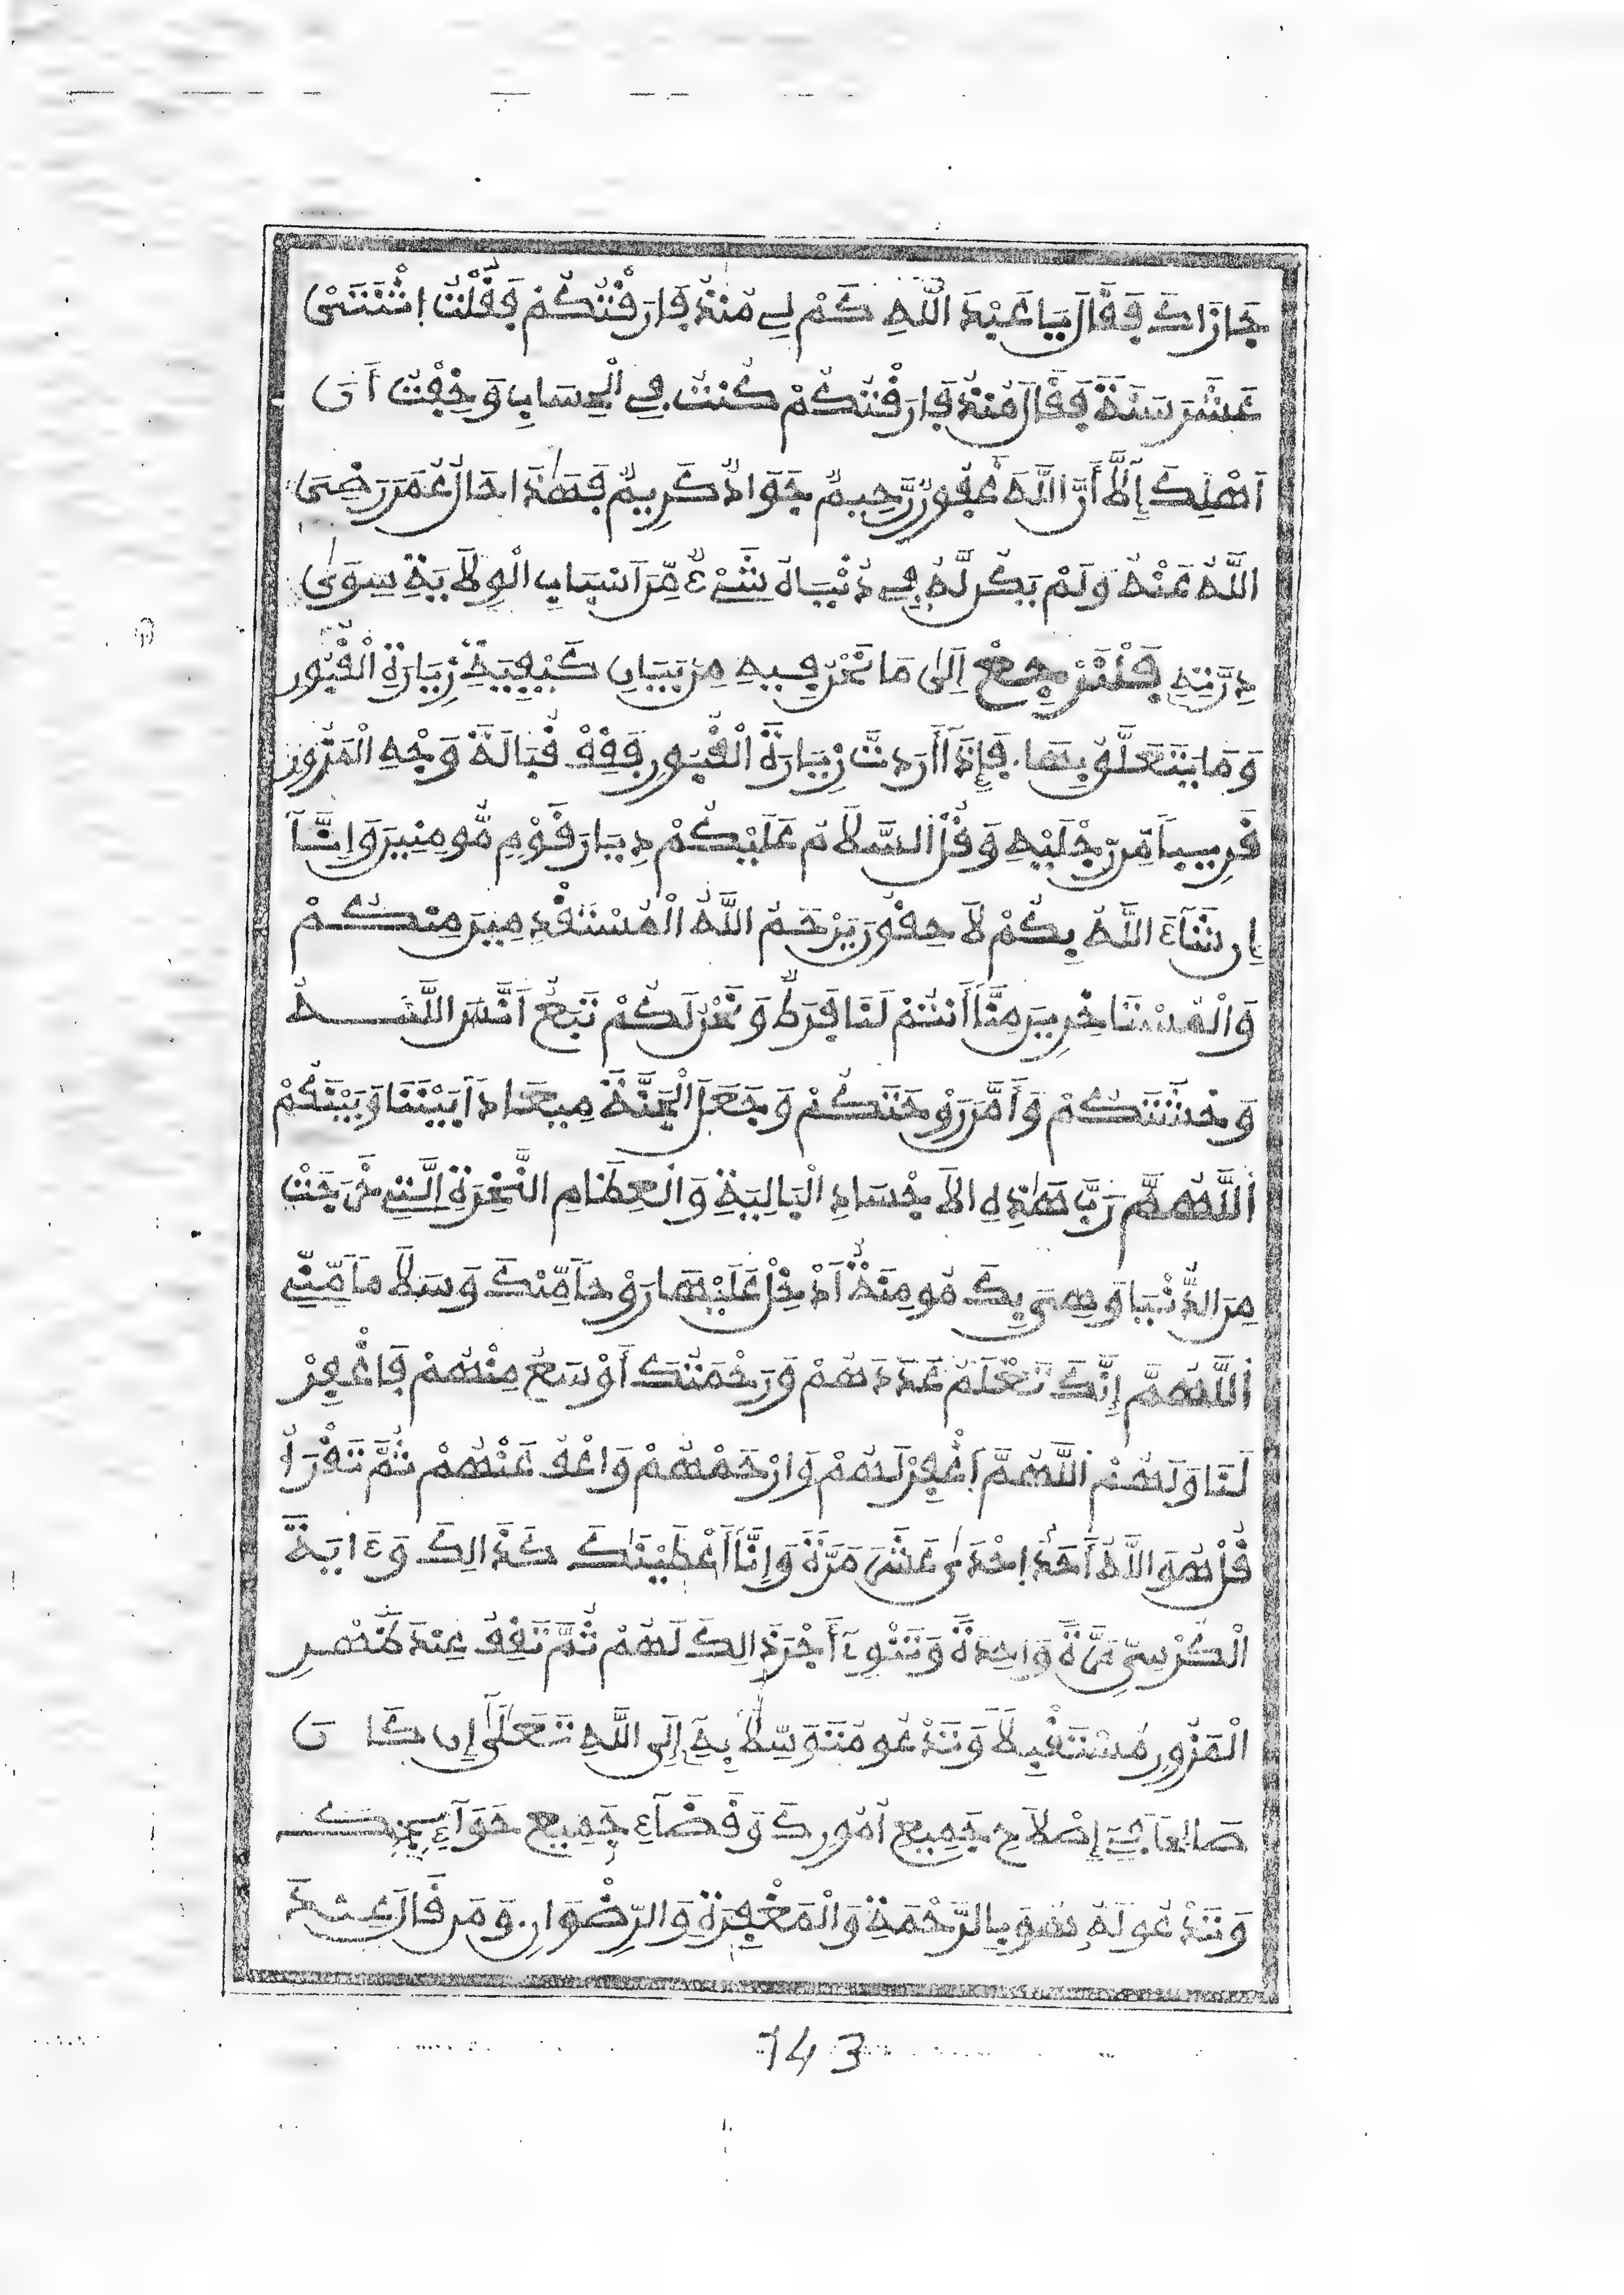 جَازَاكَ فَقَالَ يَا عَبْدَ اللَّهِ كَمْ لِي مُنْذُ فَارَقْتُكُمْ فَقُلْتُ اِثْنَتَىْ
عَشَرَ سَنَةً فَقَالَ مُنْذُ فَارَقْتُكُمْ كُنْتُ فِي الْحِسَابِ وَخِفْتُ أَن
اَهْلِكَ إِلَّا أَنَّ اللَّهَ غَفُورٌ رَّحِيمٌ جَوَادٌ كَرِيمٌ فَهَذَا حَالُ عُمَرَ رَضِىَ
اللَّهُ عَنْهُ وَلَمْ يَكُن لَّهُ فِي دُنْيَاهُ شَيْءٌ مِّنَ اَسْبَابِ الْوِلَايَةِ سِوَىٰ
دِرَّتِهِ فَلْنَرْجِعْ اِلَىٰ مَا نَحْنُ فِيهِ مِن بَيَانِ كَيْفِيَّةِ زِيَارَةِ الْقُبُورِ
وَمَا يَتَعَلَّقُ بِهَا. فَإِذَا أَرَدتَّ زِيَارَةَ الْقُبُورِ فَقِفْ قُبَالَةَ وَجْهِ الْمَزُورِ
قَرِيباً مِّن رِّجْلَيْهِ وَقُلْ السَّلَامُ عَلَيْكُمْ دِيَارَ قَوْمٍ مُّومِنِينَ وَإِنَّآ
إِن شَآءَ اللَّهُ بِكُمْ لَاحِقُونَ يَرْحَمُ اللَّهُ الْمُسْتَقْدِمِينَ مِنْكُمْ
وَالْمُسْتَاخِرِينَ مِنَّا أَنتُمْ لَنَا فَرَطٌ وَنَحْنُ لَكُمْ تَبَعٌ اَنَّسَ اللَّهُ
وَحْشَتَكُمْ وَأَمَّنَ رَوْعَتَكُمْ وَجَعَلَ الْجَنَّةَ مِيعَاداً بَيْنَنَا وَبَيْنَكُمْ
اللَّهُمَّ رَبَّ هَٰذِهِ الْاَجْسَادِ الْبَالِيَةِ وَالْعِظَامِ النَّخِرَةِ الَّتِي خَرَجَتْ
مِنَ الدُّنْيَا وَهِىَ بِكَ مُومِنَةٌ أَدْخِلْ عَلَيْهَا رَوْحاً مِّنْكَ وَسَلَاماً مِّنِّي
اللَّهُمَّ إِنَّكَ تَعْلَمُ عَدَدَهُمْ وَرَحْمَتُكَ أَوْسَعُ مِنْهُمْ فَاغْفِرْ
لَنَا وَلَهُمْ اللَّهُمَّ اَغْفِرْ لَهُمْ وَارْحَمْهُمْ وَاعْفُ عَنْهُمْ ثُمَّ تَقْرَأُ
قُلْ هُوَ اللَّهُ أَحَدٌ اِحْدَىٰ عَشَرَ مَرَّةً وَإِنَّا أَعْطَيْنَٰكَ كَذَالِكَ وَءَايَةَ
الْكُرْسِيِّ مَرَّةً وَاحِدَةً وَتَنْوِي أَجْرَ ذَالِكَ لَهُمْ ثُمَّ تَقِفُ عِنْدَ ظَهْرِ
الْمَزُورِ مُسْتَقْبِلاً وَتَدْعُو مُتَوَسِّلاً بِهِ إِلَى اللَّهِ تَعَالَىٰ إِن كَانَ
صَالِحاً فِي إِصْلَاحِ جَمِيعِ أُمُورِكَ وَقَضَآءِ جَمِيعِ حَوَآئِجِكَ
وَتَدْعُو لَهُ هُوَ بِالرَّحْمَةِ وَالْمَغْفِرَةِ وَالرِّضْوَانِ. وَمَن قَالَ عِنْدَ
143